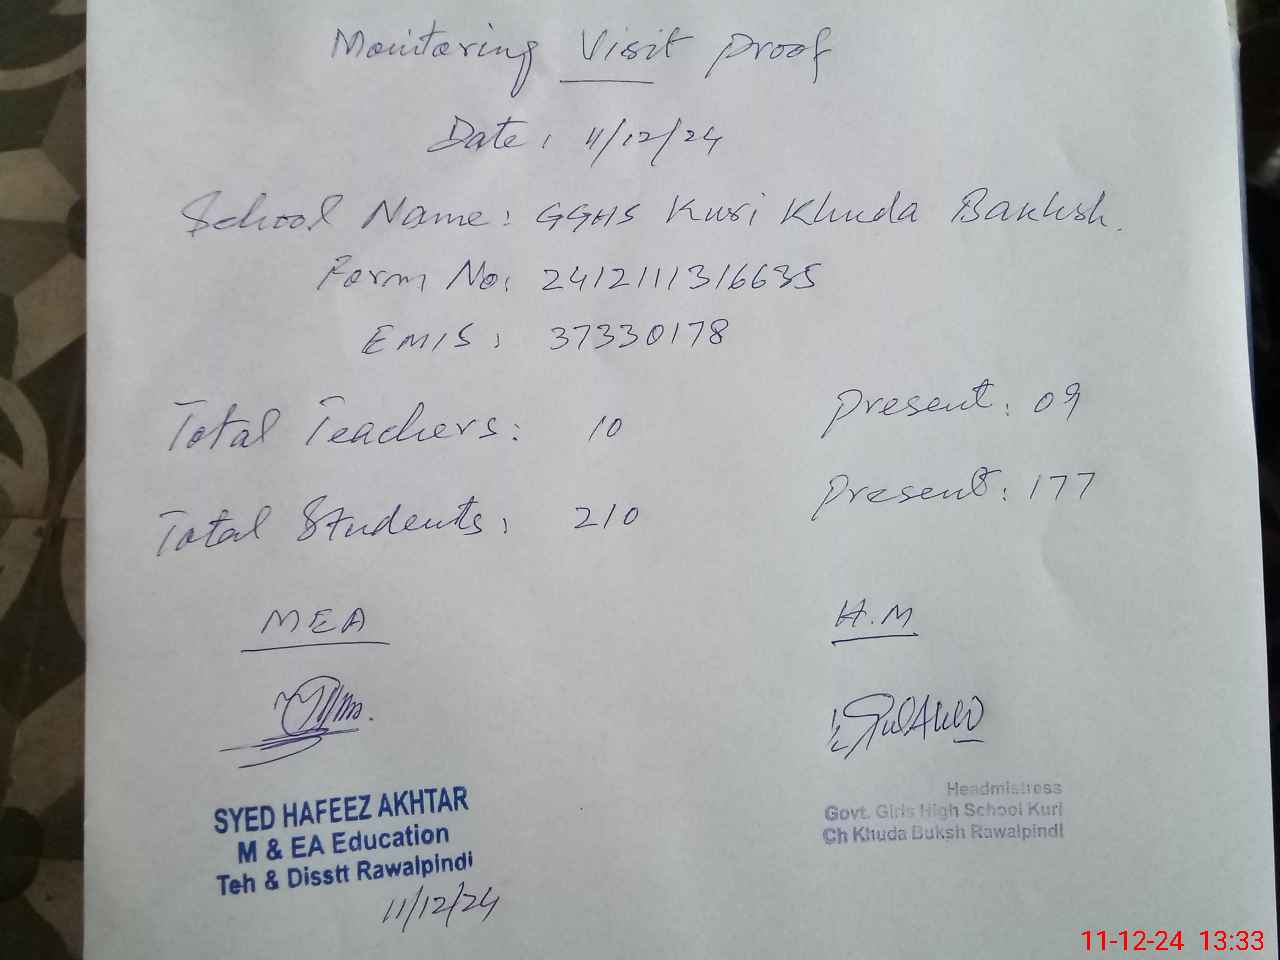 Monitoring Visit Proof
Date: 11/12/24
School Name: GGHS Kuri Khuda Bakhsh.
Form No: 2412111316635
EMIS: 37330178
Total Teachers: 10 Present: 09
Total Students: 210 Present: 177
MEA H.M
SYED HAFEEZ AKHTAR
M & EA Education
Teh & Disstt Rawalpindi
11/12/24
Headmistress
Govt. Girls High School Kuri
Ch Khuda Buksh Rawalpindi
11-12-24 13:33